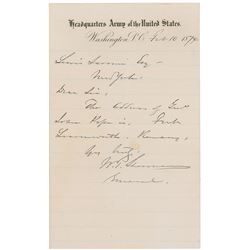 Headquarters Army of the United States.
Washington, D.C. Feb 10 1879
Esq
New York.
Dear Sir,
The address of Genl
John Pope is, Fort
Leavenworth, Kansas,
Yrs truly
W. T. Sherman
General